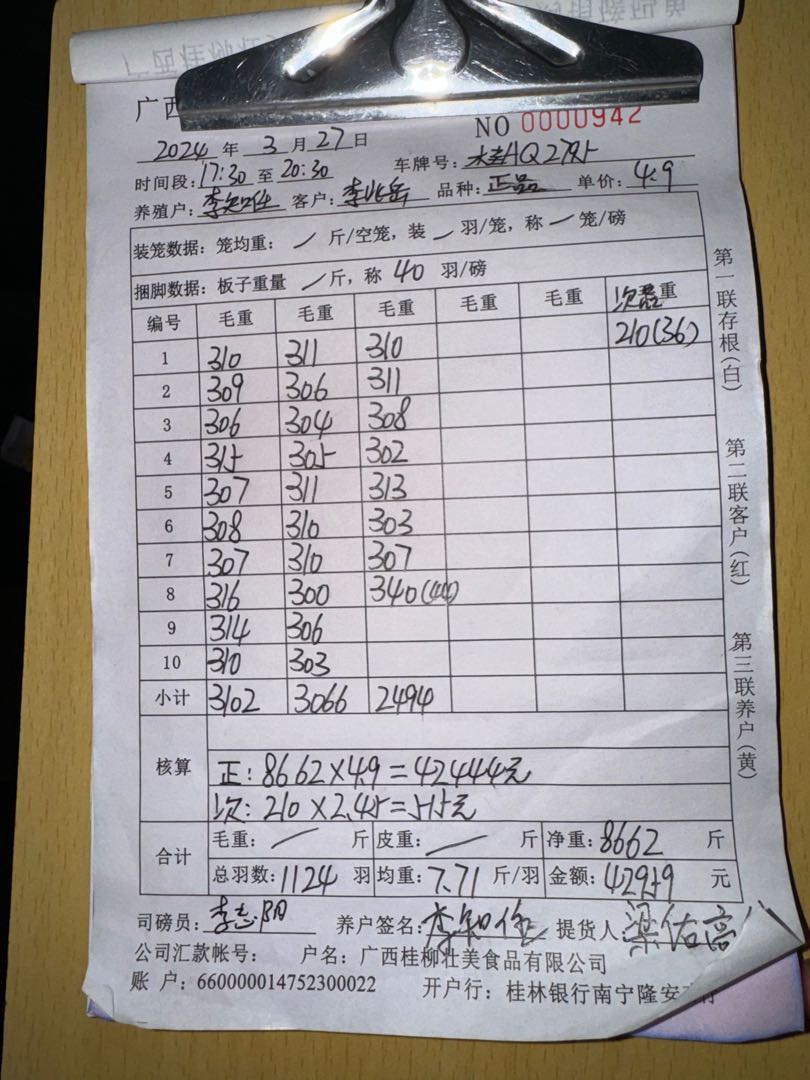 广西
NO 0000942
2024 年 3 月 27 日
时间段:17:30 至 20:30 车牌号:
养殖户: 客户:李兆岳 品种:正品 单价:4.9
装笼数据: 笼均重: / 斤/空笼, 装 / 羽/笼, 称 / 笼/磅
捆脚数据: 板子重量 / 斤, 称 40 羽/磅
编号 毛重 毛重 毛重 毛重 毛重 次品重
210(36)
1 310 311 310
2 309 306 311
3 306 304 308
4 315 305 302
5 307 311 313
6 308 310 303
7 307 310 307
8 316 300 340(44)
9 314 306
10 310 303
小计 3102 3066 2494
核算
正: 8662×4.9=42444元
次: 210×2.45=515元
合计 毛重: / 斤 皮重: / 斤 净重: 8662 斤
总羽数: 1124 羽 均重: 7.71 斤/羽 金额: 42959 元
司磅员: 李志阳 养户签名: 提货人 梁佑高
公司汇款帐号: 户名: 广西桂柳壮美食品有限公司
账 户: 660000014752300022 开户行: 桂林银行南宁隆安支行
第一联存根(白)
第二联客户(红)
第三联养户(黄)